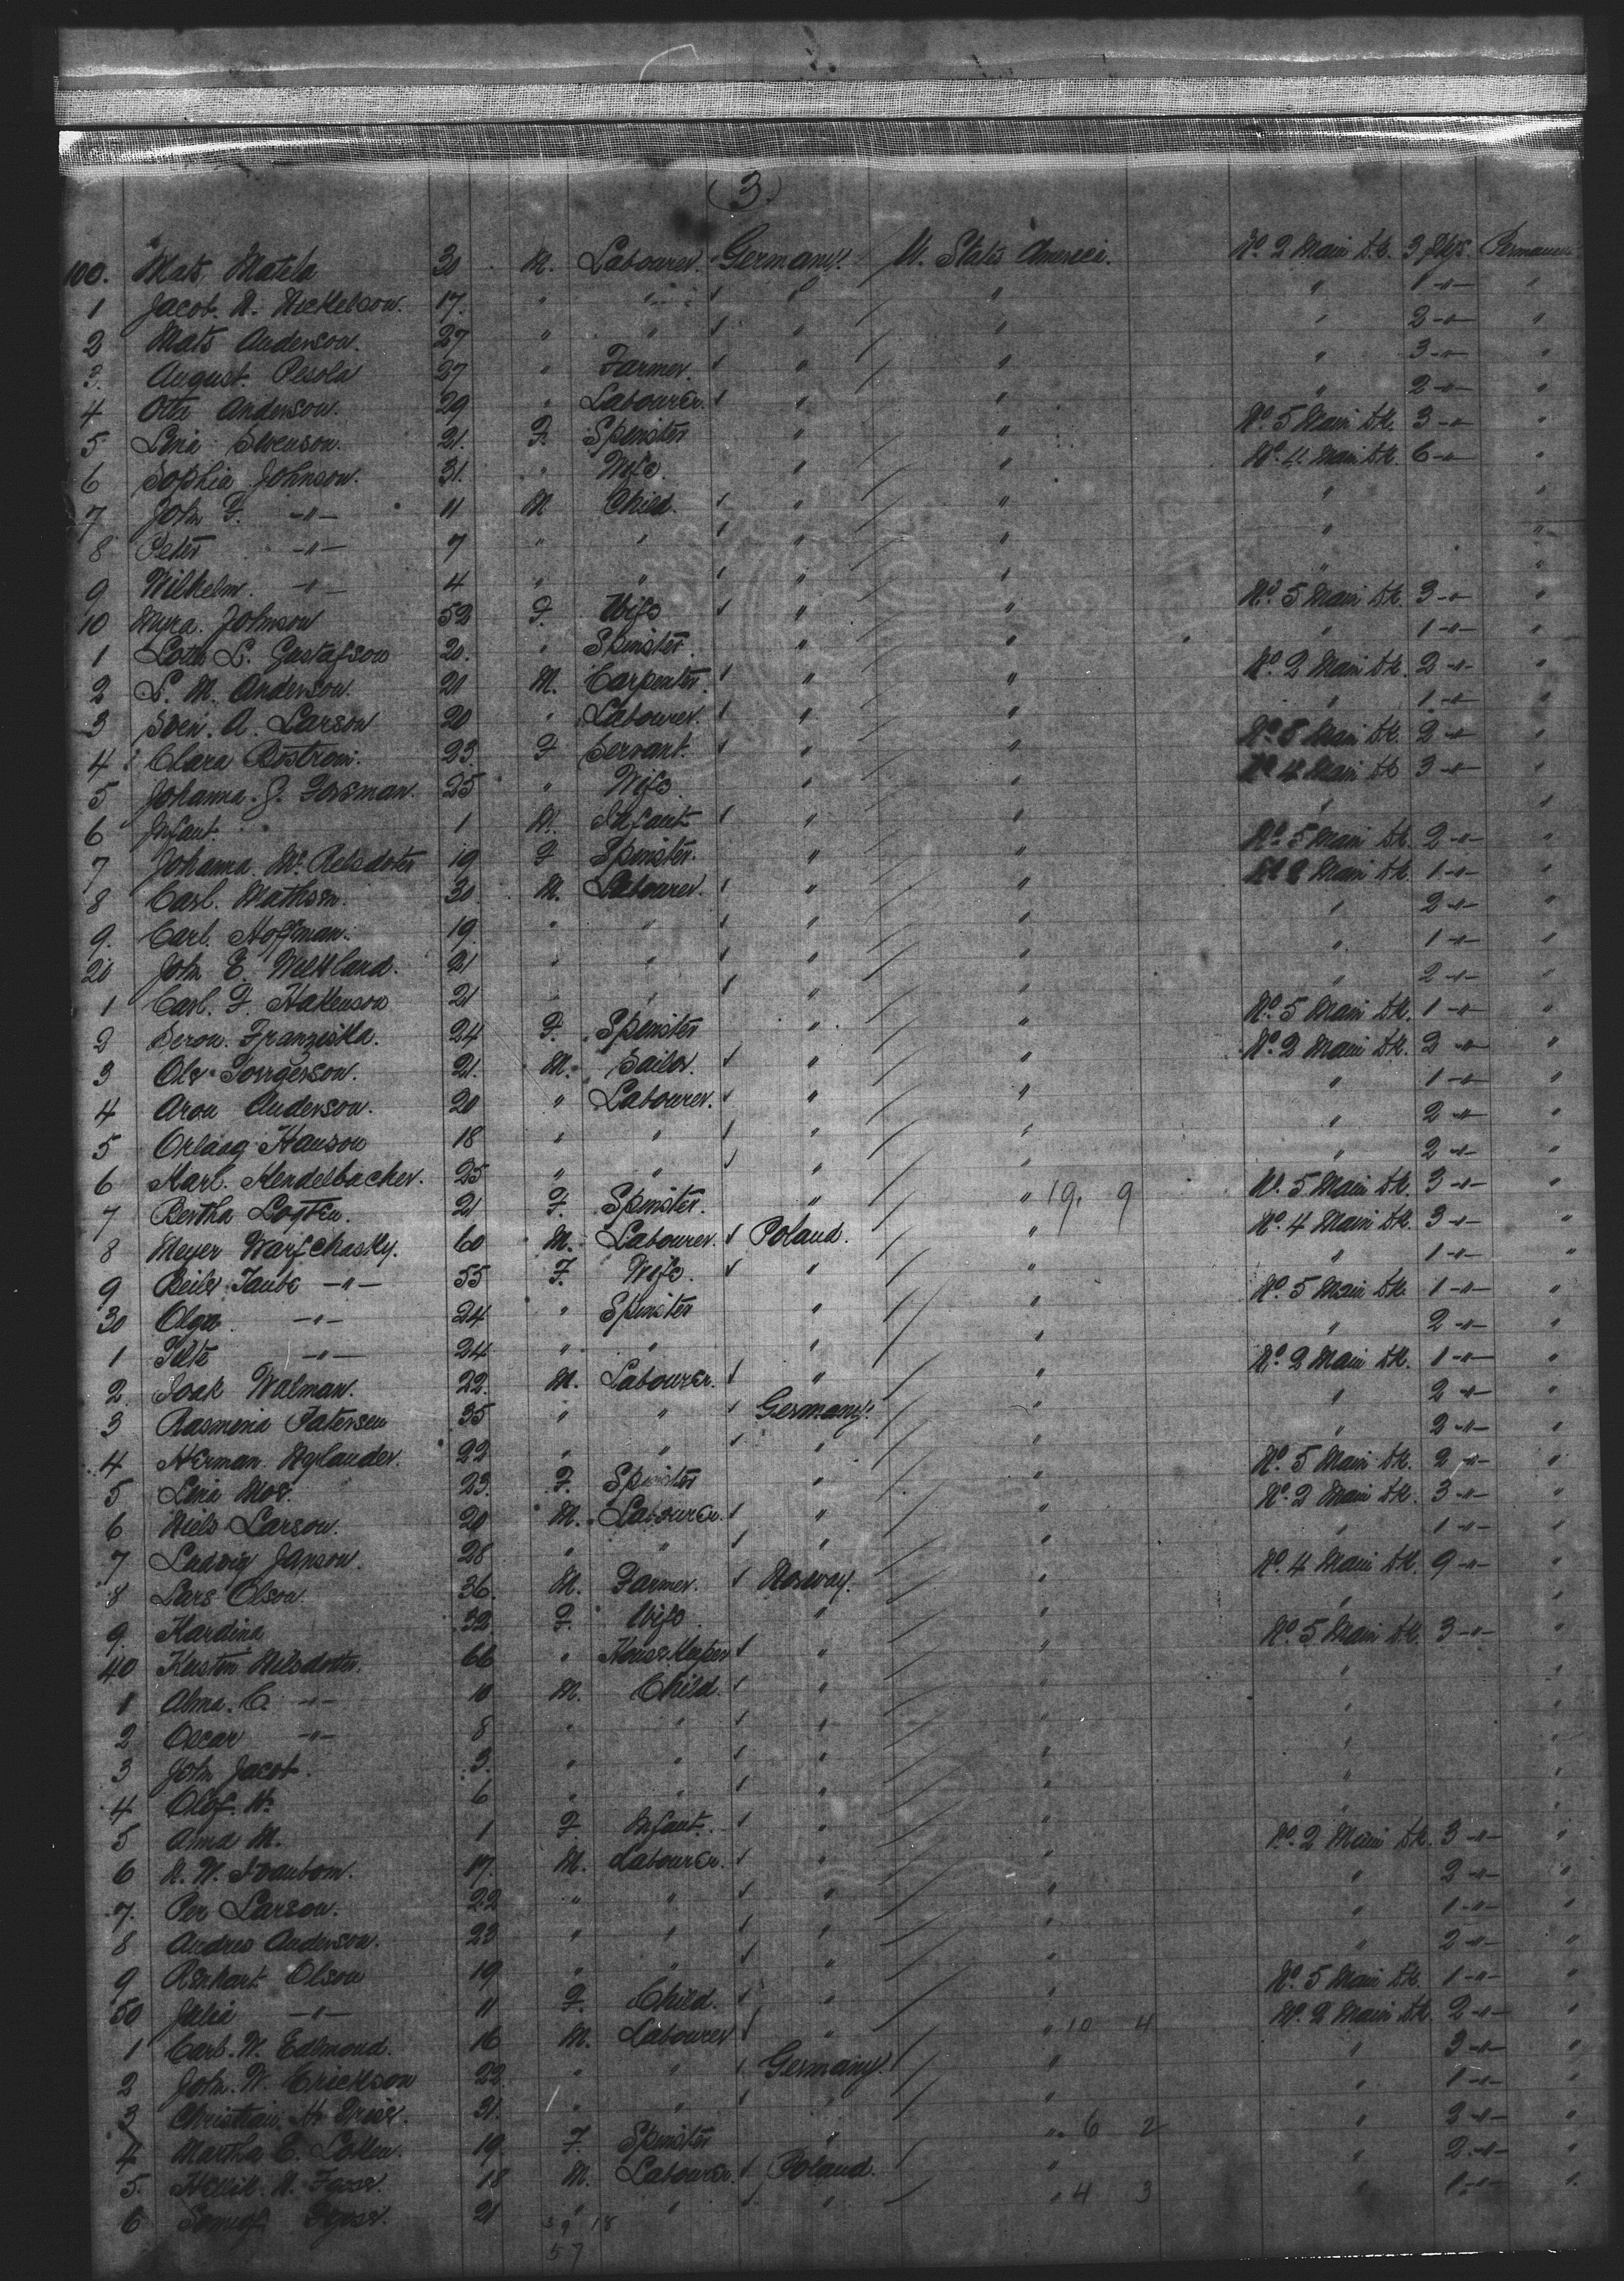 (3)
100. Mats Matela 30 M. Labourer Germany. U. States Americi. No. 2 Main Dk. 3 Pkgs. Permanent
1 Jacob. N. Nickelson. 17. " " " " " 1 -"- "
2 Mats Anderson. 27 " " " " " 2 -"- "
3. August. Pesola 27 " Farmer. " " " 3 -"- "
4 Otto Anderson. 29 " Labourer. " " " 2 -"- "
5 Lina Svenson. 21. F. Spinster " " No. 5 Main Dk. 3 -"- "
6 Sophia Johnson. 31. " Wife. " " No. 4 Main Dk. 6 -"- "
7 John F. -"- 11 M Child. " " " "
8 Peter -"- 7 " " " " " "
9 Wilhelm. -"- 4 " " " " " "
10 Myra. Johnson 52 F. Wife " " No. 5 Main Dk. 3 -"- "
1 L. Gustafson 20. " Spinster. " " " 1 -"- "
2 L. M. Anderson. 21 M. Carpenter. " " No. 2 Main Dk. 2 -"- "
3 Sven. A. Larson 20 " Labourer. " " " 1 -"- "
4 Clara Bostrom. 23. F Servant. " " No. 5 Main Dk. 2 -"- "
5 Johanna. G. Forsman. 25 " Wife. " " No. 4 Main Dk 3 -"- "
6 Infant. 1 M. Infant " " " "
7 Johanna. M. 19 F Spinster. " " No. 5 Main Dk. 2 -"- "
8 Carl. Mathson. 30. M. Labourer. " " No. 2 Main Dk. 1 -"- "
9. Carl. Hoffman. 19. " " " " " 2 -"- "
20 John E. Westland. 21 " " " " " 1 -"- "
1 Carl. F. Hakenson 21 " " " " " 2 -"- "
2 Franziska. 24 F. Spinster " " No. 5 Main Dk. 1 -"- "
3 Ole Torrgerson. 21. M. Sailor. " " No. 2 Main Dk. 2 -"- "
4 Aron Anderson. 20 " Labourer. " " " 1 -"- "
5 Hanson 18 " " " " " 2 -"- "
6 Karl. Hendelbacher. 25 " " " " " 2 -"- "
7 Bertha 21 F. Spinster. " " 19. 9 No. 5 Main Dk. 3 -"- "
8 Meyer Warfchasky. 60 M. Labourer. Poland. " No. 4 Main Dk. 3 -"- "
9 Taube -"- 55 F. Wife. " " " 1 -"- "
30 Olga -"- 24 " Spinster " " No. 5 Main Dk. 1 -"- "
1 -"- 24 " " " " " 2 -"- "
2. Walman. 22. M. Labourer. " " No. 2 Main Dk. 1 -"- "
3 35 " " Germany. " " 2 -"- "
4 Herman. Nylander. 22 " " " " " 2 -"- "
5 Lina 23. F. Spinster " " No. 5 Main Dk. 2 -"- "
6 Niels Larson. 20 M. Labourer. " " No. 2 Main Dk. 3 -"- "
7 Ludwig Janson. 28 " " " " " 1 -"- "
8 Lars Olson. 36. M. Farmer. Norway. " No. 4 Main Dk. 9 -"- "
9. Kardina 32. F. Wife " " " "
40 Kersten Nilsdotter. 66 " HouseKeeper " " No. 5 Main Dk. 3 -"- "
1 Alma. C. -"- 10 M. Child. " " " "
2 Oscar -"- 8 " " " " " "
3 John Jacob. 3. " " " " " "
4 Olof. N. 6 " " " " " "
5 Anna M. 1 F Infant. " " " "
6 N. N. 17. M. Labourer. " " No. 2 Main Dk. 3 -"- "
7. Per Larson. 22 " " " " " 2 -"- "
8 Andres Anderson. 23 " " " " " 1 -"- "
9 Olson 19 " " " " " 2 -"- "
50 Julia -"- 11 F. Child. " " No. 5 Main Dk. 1 -"- "
1 Carl. W. Edlmond. 16 M. Labourer " " 10 4 No. 2 Main Dk. 2 -"- "
2 John. W. Erickson 22. " " Germany. " " 3 -"- "
3 Christian. 31. " " " " " 1 -"- "
4 Martha E. 19. F. Spinster " " 6 2 " 2 -"- "
5. 18 M. Labourer. Poland. " " 2 -"- "
6 21 " " " " 4 3 " 1 -"- "
39 18
57